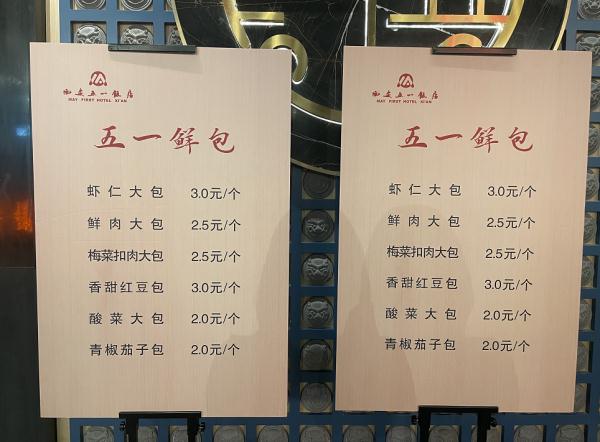 西安五一饭店
MAY FIRST HOTEL XI'AN
五一鲜包
虾仁大包 3.0元/个
鲜肉大包 2.5元/个
梅菜扣肉大包 2.5元/个
香甜红豆包 3.0元/个
酸菜大包 2.0元/个
青椒茄子包 2.0元/个
西安五一饭店
MAY FIRST HOTEL XI'AN
五一鲜包
虾仁大包 3.0元/个
鲜肉大包 2.5元/个
梅菜扣肉大包 2.5元/个
香甜红豆包 3.0元/个
酸菜大包 2.0元/个
青椒茄子包 2.0元/个